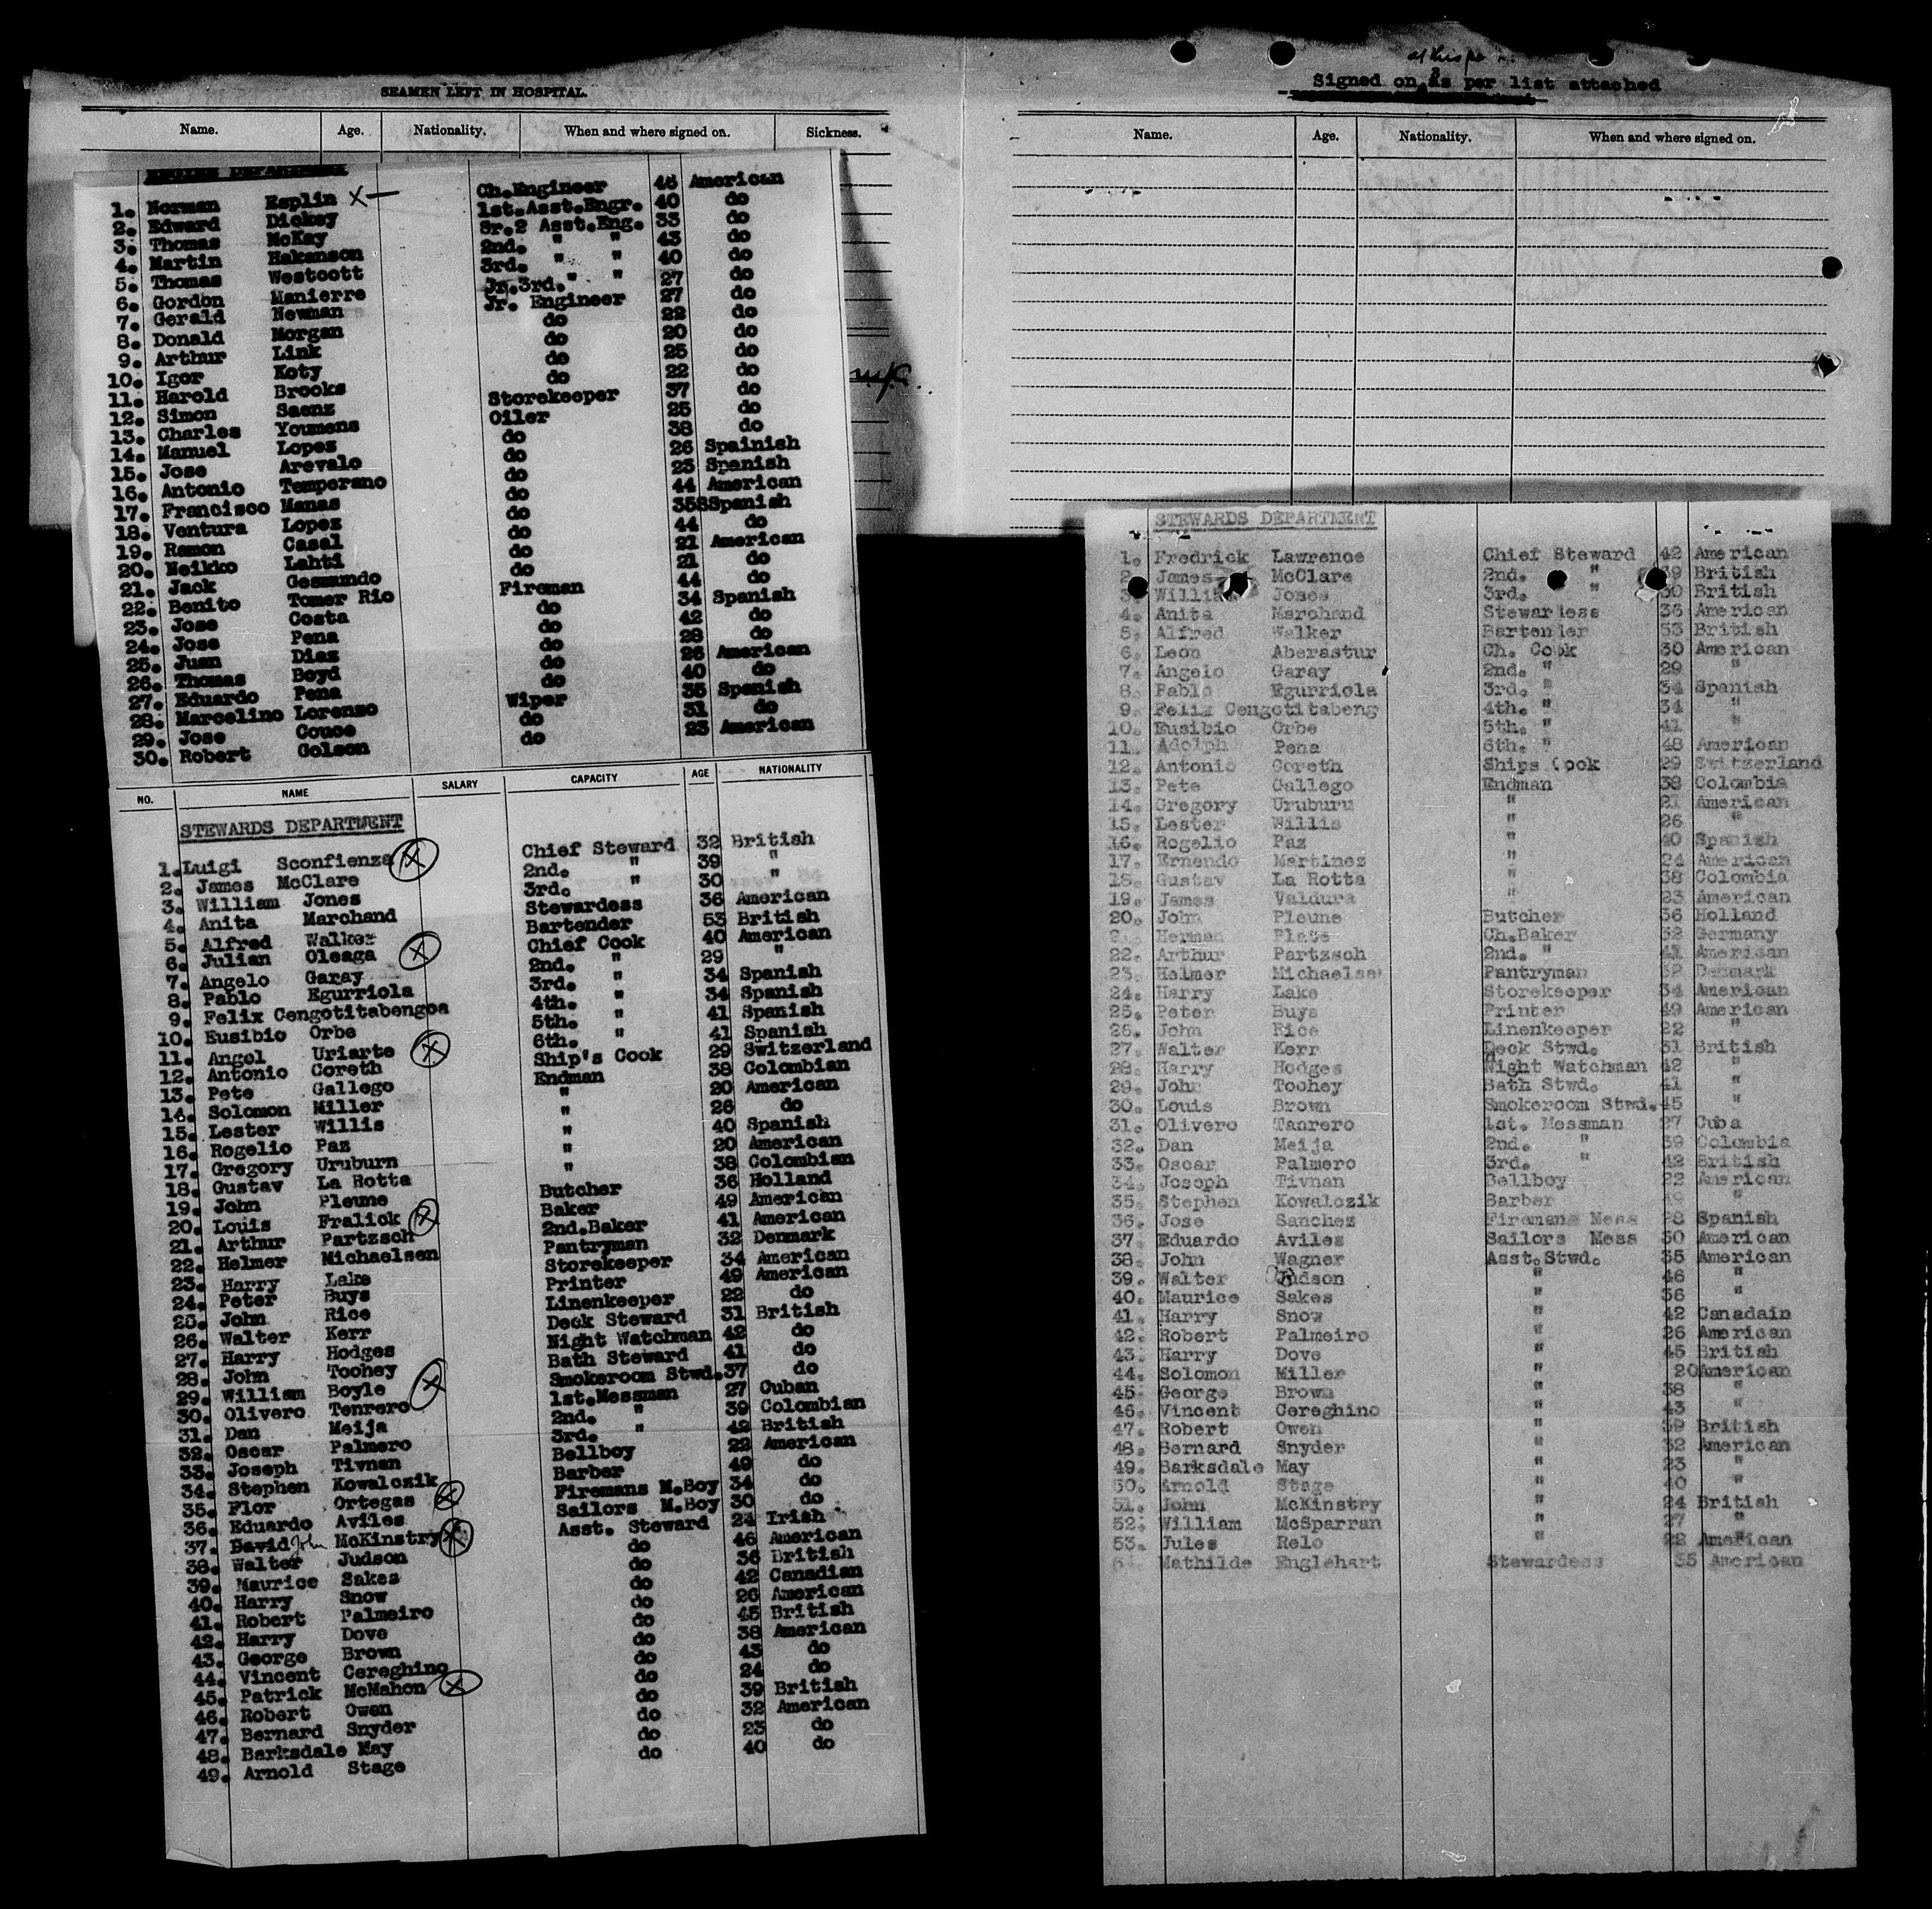 SEAMEN LEFT IN HOSPITAL.
Name. Age. Nationality. When and where signed on. Sickness.
ENGINE DEPARTMENT
1. Norman Esplin X— Ch.Engineer 46 American
2. Edward Dickey 1st.Asst.Engr. 40 do
3. Thomas McKay Sr.2 Asst.Eng. 33 do
4. Martin Hakanson 2nd. " " 43 do
5. Thomas Westcott 3rd. " " 40 do
6. Gordon Manierre Jr.3rd. " " 27 do
7. Gerald Newman Jr. Engineer 27 do
8. Donald Morgan do 22 do
9. Arthur Link do 20 do
10. Igor Koty do 25 do
11. Harold Brooks do 22 do
12. Simon Saenz Storekeeper 37 do
13. Charles Youmens Oiler 25 do
14. Manuel Lopez do 38 do
15. Jose Arevalo do 26 Spainish
16. Antonio Temperano do 23 Spanish
17. Francisco Manas do 44 American
18. Ventura Lopez do 358Spanish
19. Ramon Casal do 44 do
20. Neikko Lahti do 21 American
21. Jack Gesmundo do 21 do
22. Benito Tomer Rio Fireman 44 do
23. Jose Costa do 34 Spanish
24. Jose Pena do 42 do
25. Juan Diaz do 28 do
26. Thomas Boyd do 26 American
27. Eduardo Pena do 40 do
28. Marcelino Lorenzo Wiper 35 Spanish
29. Jose Couce do 31 do
30. Robert Golson do 23 American
NO. NAME SALARY CAPACITY AGE NATIONALITY
STEWARDS DEPARTMENT
1. Luigi Sconfienza X Chief Steward 32 British
2. James McClare 2nd. " 39 "
3. William Jones 3rd. " 30 "
4. Anita Marchand Stewardess 36 American
5. Alfred Walker Bartender 53 British
6. Julian Oleaga X Chief Cook 40 American
7. Angelo Garay 2nd. " 29 "
8. Pablo Egurriola 3rd. " 34 Spanish
9. Felix Cengotitabengoa 4th. " 34 Spanish
10. Eusibio Orbe 5th. " 41 Spanish
11. Angel Uriarte X 6th. " 41 Spanish
12. Antonio Coreth Ship's Cook 29 Switzerland
13. Pete Gallego Endman 38 Colombian
14. Solomon Miller " 20 American
15. Lester Willis " 26 do
16. Rogelio Paz " 40 Spanish
17. Gregory Uruburn " 20 American
18. Gustav La Rotta " 38 Colombian
19. John Pleune Butcher 36 Holland
20. Louis Fralick X Baker 49 American
21. Arthur Partzsch 2nd.Baker 41 American
22. Helmer Michaelsen Pantryman 32 Denmark
23. Harry Lake Storekeeper 34 American
24. Peter Buys Printer 49 American
25. John Rice Linenkeeper 22 do
26. Walter Kerr Deck Steward 31 British
27. Harry Hodges Night Watchman 42 do
28. John Toohey Bath Steward 41 do
29. William Boyle X Smokeroom Stwd. 37 do
30. Olivero Tenrero 1st.Messman 27 Cuban
31. Dan Meija 2nd. " 39 Colombian
32. Oscar Palmero 3rd. " 42 British
33. Joseph Tivnan Bellboy 22 American
34. Stephen Kowalczik Barber 49 do
35. Flor Ortegas X Firemans M.Boy 34 do
36. Eduardo Aviles Sailors M.Boy 30 do
37. David John McKinstry X Asst. Steward 24 Irish
38. Walter Judson do 46 American
39. Maurice Sakes do 36 British
40. Harry Snow do 42 Canadian
41. Robert Palmeiro do 26 American
42. Harry Dove do 45 British
43. George Brown do 38 American
44. Vincent Cereghino do 43 do
45. Patrick McMahon X do 24 do
46. Robert Owen do 39 British
47. Bernard Snyder do 32 American
48. Barksdale May do 23 do
49. Arnold Stage do 40 do
Signed on as per list attached
Name. Age. Nationality. When and where signed on.
STEWARDS DEPARTMENT
1. Fredrick Lawrence Chief Steward 42 American
2. James McClare 2nd. " 39 British
3. William Jones 3rd. " 30 British
4. Anita Marchand Stewardess 36 American
5. Alfred Walker Bartender 53 British
6. Leon Aberastur Ch. Cook 30 American
7. Angelo Garay 2nd. " 29 "
8. Pablo Egurriola 3rd. " 34 Spanish
9. Felix Cengotitabeng 4th. " 34 "
10. Eusibio Orbe 5th. " 41 "
11. Adolph Pena 6th. " 48 American
12. Antonio Coreth Ships Cook 29 Switzerland
13. Pete Gallego Endman 38 Colombia
14. Gregory Uruburu " 21 American
15. Lester Willis " 26 "
16. Rogelio Paz " 40 Spanish
17. Ernendo Martinez " 24 American
18. Gustav La Rotta " 38 Colombia
19. James Valdura " 23 American
20. John Pleune Butcher 36 Holland
21. Herman Plate Ch.Baker 32 Germany
22. Arthur Partzsch 2nd. " 41 American
23. Helmer Michaelsen Pantryman 32 Denmark
24. Harry Lake Storekeeper 34 American
25. Peter Buys Printer 49 American
26. John Rice Linenkeeper 22 "
27. Walter Kerr Deck Stwd. 31 British
28. Harry Hodges Night Watchman 42 "
29. John Toohey Bath Stwd. 41 "
30. Louis Brown Smokeroom Stwd. 45 "
31. Olivero Tanrero 1st. Messman 27 Cuba
32. Dan Meija 2nd. " 39 Colombia
33. Oscar Palmero 3rd. " 42 British
34. Joseph Tivnan Bellboy 22 American
35. Stephen Kowalczik Barber 49 "
36. Jose Sanchez Firemans Mess 28 Spanish
37. Eduardo Aviles Sailors Mess 30 American
38. John Wagner Asst.Stwd. 35 American
39. Walter Judson " 46 "
40. Maurice Sakes " 36 "
41. Harry Snow " 42 Canadain
42. Robert Palmeiro " 26 American
43. Harry Dove " 45 British
44. Solomon Miller " 20American
45. George Brown " 38 "
46. Vincent Cereghino " 43 "
47. Robert Owen " 39 British
48. Bernard Snyder " 32 American
49. Barksdale May " 23 "
50. Arnold Stage " 40 "
51. John McKinstry " 24 British
52. William McSparran " 27 "
53. Jules Relo " 22 American
54. Mathilde Englehart Stewardess 35 American